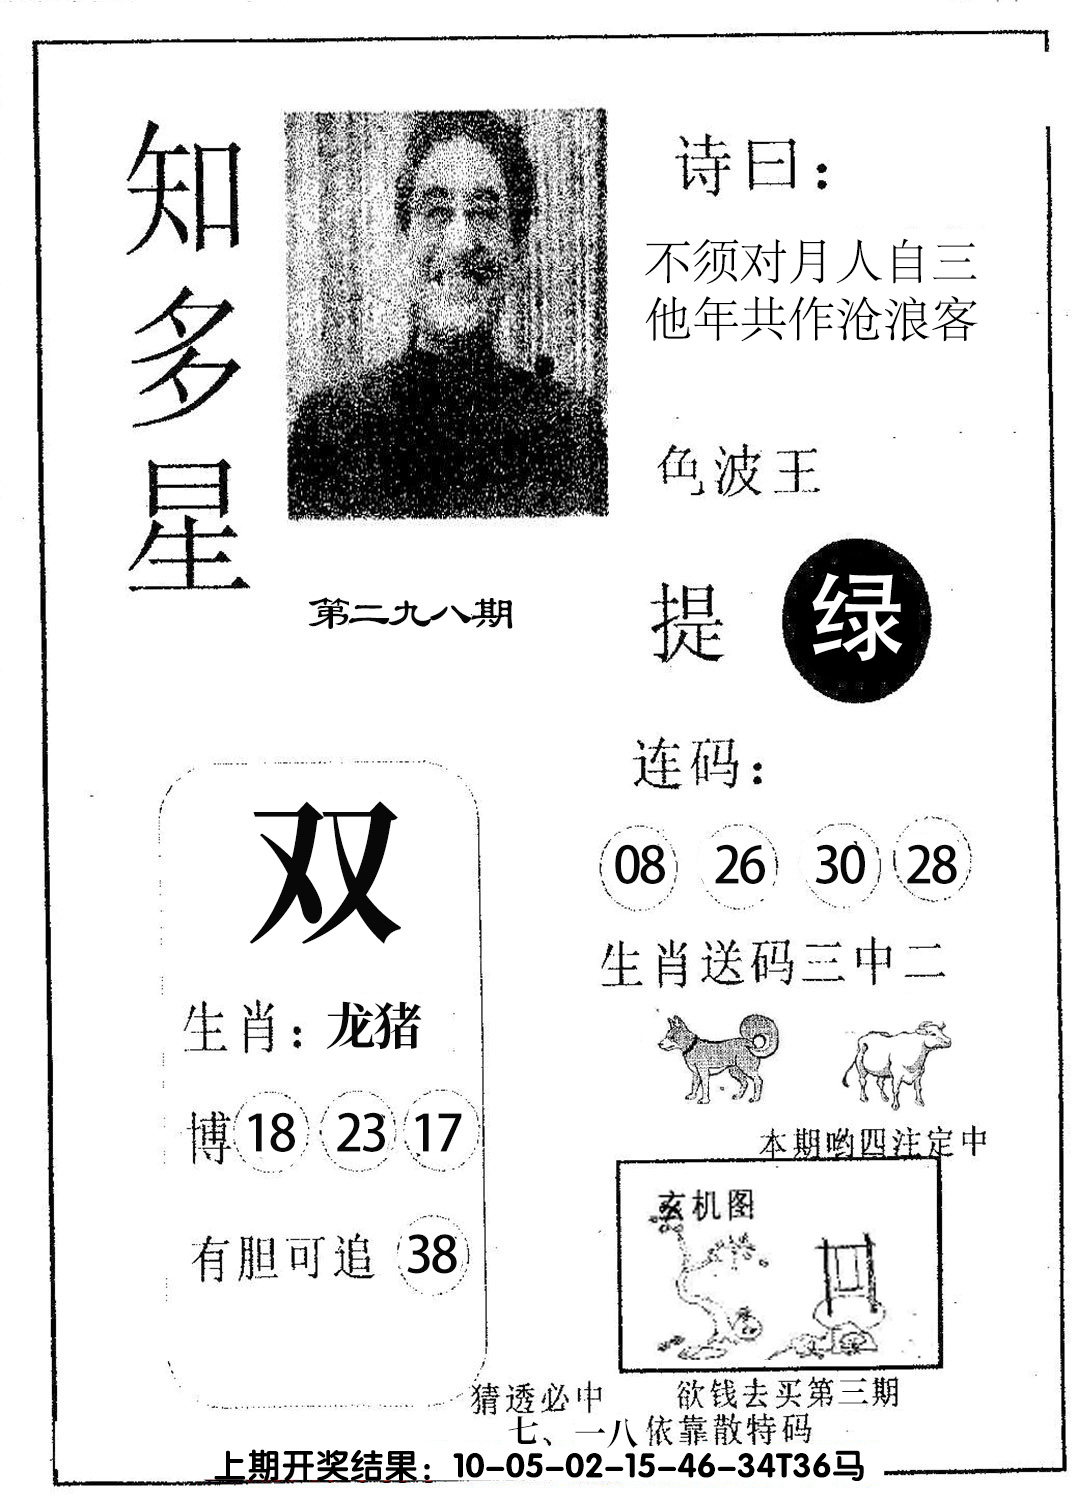 知多星
诗曰：
不须对月人自三
他年共作沧浪客
色波王
提 绿
第二九八期
连码：
08 26 30 28
生肖送码三中二
本期哟四注定中
玄机图
双
生肖：龙猪
博 18 23 17
有胆可追 38
猜透必中 欲钱去买第三期
七、一八依靠散特码
上期开奖结果：10-05-02-15-46-34T36马